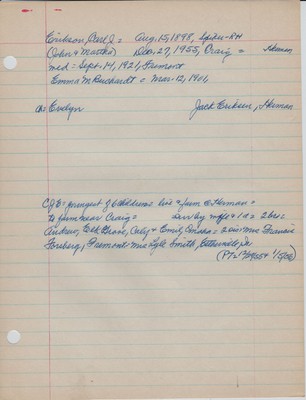 Erikson, Carl J = Aug. 15, 1898, Spiker - RH
(John & Martha) Dec. 27, 1955, Craig = Herman
md = Sept. 14, 1921, Fremont
Emma M Burchardt = Mar. 12, 1901,
Ch = Evelyn Jack Erikson, Herman
CJE = youngest of 6 children = liv & farm @ Herman =
to farm near Craig = surv by wife & 1 d = 2 brs =
Andrew, Elk Grove, Calif & Emil, Omaha = 2 sis Mrs Francis
Forsberg, Fremont Mrs Lyle Smith,
(PT =